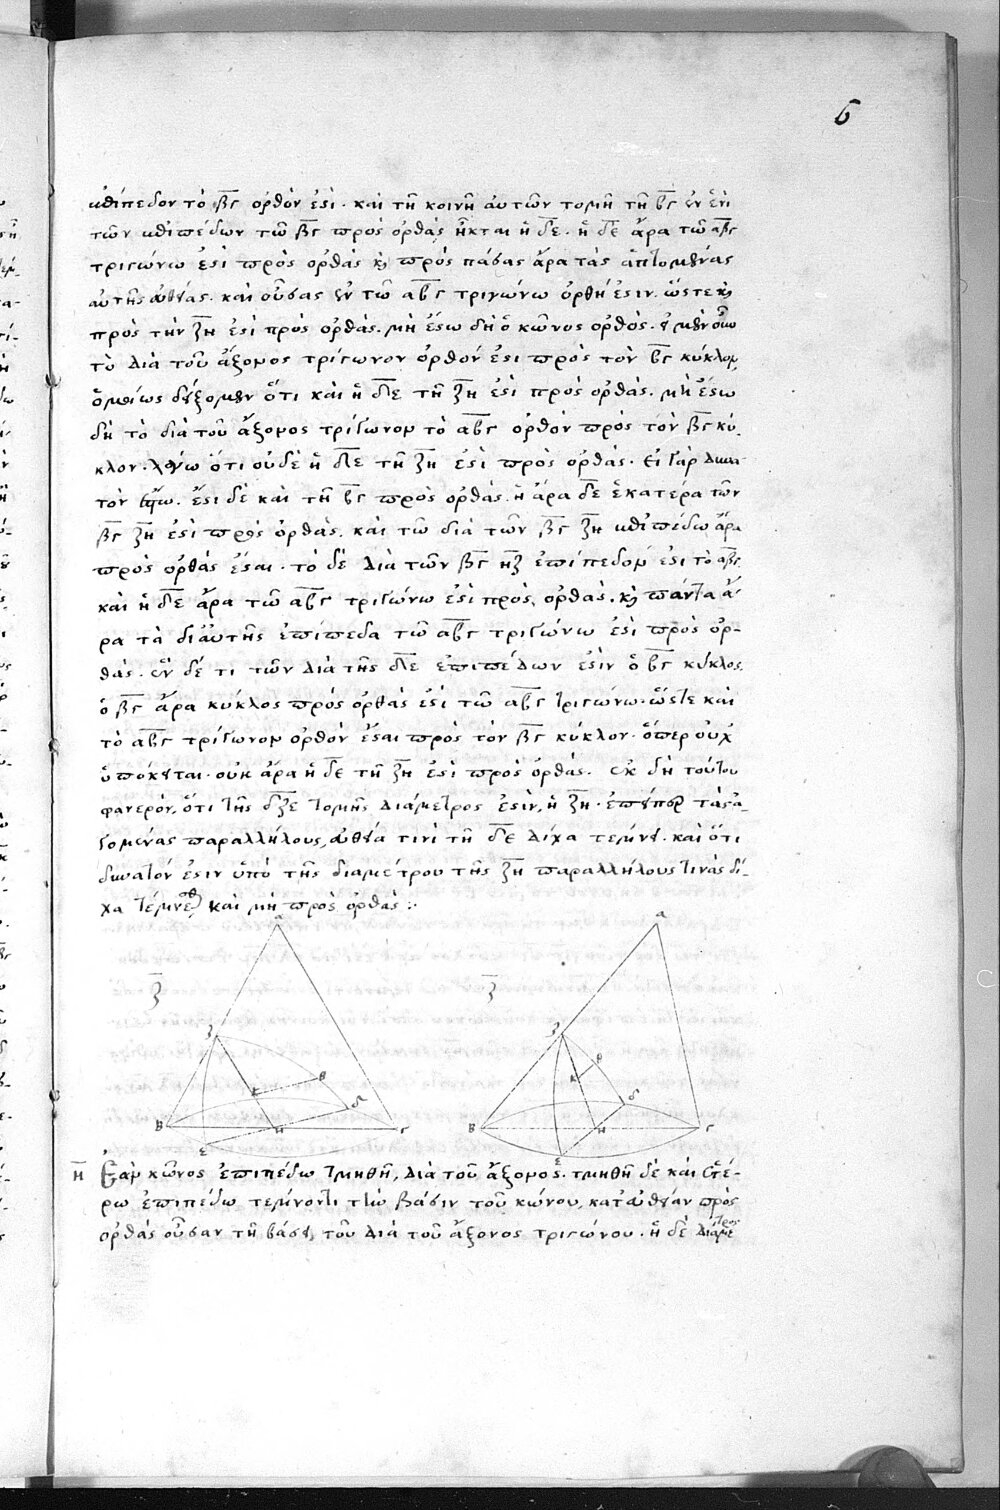 6
ἐπίπεδον τὸ βγ ὀρθόν ἐστι. καὶ τῆ κοινῆ αὐτῶν τομῆ τῆ βγ ἐν ἑνὶ
τῶν ἐπιπέδων τῶ βγ πρὸς ὀρθὰς ἦκται ἡ δε. ἡ δε ἄρα τῶ αβγ
τριγώνω ἐστὶ πρὸς ὀρθὰς κ πρὸς πάσας ἄρα τὰς ἁπτομένας
αὐτῆς εὐθείας. καὶ οὔσας ἐν τῶ αβγ τριγώνω ὀρθή ἐστιν. ὥστε κ
πρὸς τὴν ζη ἐστὶ πρὸς ὀρθάς. μὴ ἔστω δὴ ὁ κῶνος ὀρθός. εἰ μὲν οὖν
τὸ διὰ τοῦ ἄξονος τρίγωνον ὀρθόν ἐστι πρὸς τὸν βγ κύκλον
ὁμοίως δείξομεν ὅτι καὶ ἡ δε τῆ ζη ἐστὶ πρὸς ὀρθάς. μὴ ἔστω
δὴ τὸ διὰ τοῦ ἄξονος τρίγωνον τὸ αβγ ὀρθὸν πρὸς τὸν βγ κύ
κλον. λέγω ὅτι οὐδὲ ἡ δε τῆ ζη ἐστὶ πρὸς ὀρθάς. εἰ γὰρ δυνα
τὸν ἔστω. ἔστι δὲ καὶ τῆ βγ πρὸς ὀρθάς. ἡ ἄρα δε ἑκατέρα τῶν
βγ ζη ἐστὶ πρὸς ὀρθάς. καὶ τῶ διὰ τῶν βγ ζη ἐπιπέδω ἄρα
πρὸς ὀρθὰς ἔσται. τὸ δὲ διὰ τῶν βγ ηζ ἐπίπεδόν ἐστι τὸ αβγ
καὶ ἡ δε ἄρα τῶ αβγ τριγώνω ἐστὶ πρὸς ὀρθάς. κ πάντα ἄ
ρα τὰ δι αὐτῆς ἐπίπεδα τῶ αβγ τριγώνω ἐστὶ πρὸς ὀρ-
θάς. ἓν δέ τι τῶν διὰ τῆς δε ἐπιπέδων ἐστὶν ὁ βγ κύκλος
ὁ βγ ἄρα κύκλος πρὸς ὀρθάς ἐστι τῶ αβγ τριγώνω. ὥστε καὶ
τὸ αβγ τρίγωνον ὀρθὸν ἔσται πρὸς τὸν βγ κύκλον. ὅπερ οὐχ
ὑπόκειται. οὐκ ἄρα ἡ δε τῆ ζη ἐστὶ πρὸς ὀρθάς. ἐκ δὴ τούτου
φανερόν, ὅτι τῆς δζε τομῆς διάμετρός ἐστιν, ἡ ζη. ἐπείπερ τὰς ἀ
γομένας παραλλήλους, εὐθεία τινὶ τῆ δε δίχα τέμνει. καὶ ὅτι
δυνατόν ἐστιν ὑπὸ τῆς διαμέτρου τῆς ζη παραλλήλους τινὰς δί-
χα τέμνεσθ καὶ μὴ πρὸς ὀρθάς :·
α ζ ζ θ κ δ β η γ ε
α ζ ζ θ κ δ β η γ ε
η Ἐὰν κῶνος ἐπιπέδω τμηθῆ, διὰ τοῦ ἄξονος. τμηθῆ δὲ καὶ ἑτέ-
ρω ἐπιπέδω τέμνοντι τὴν βάσιν τοῦ κώνου, κατ εὐθεῖαν πρὸς
ὀρθὰς οὖσαν τῆ βάσει, τοῦ διὰ τοῦ ἄξονος τριγώνου. ἡ δὲ διάμετρος